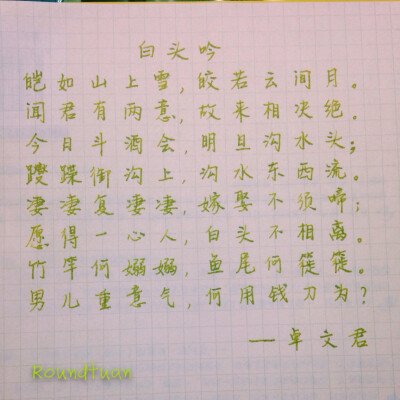 白头吟
皑如山上雪，皎若云间月。
闻君有两意，故来相决绝。
今日斗酒会，明旦沟水头；
躞躁御沟上，沟水东西流。
凄凄复凄凄，嫁娶不须啼；
愿得一心人，白头不相离。
竹竿何嫋嫋，鱼尾何簁簁。
男儿重意气，何用钱刀为？
——卓文君
Roundtuan